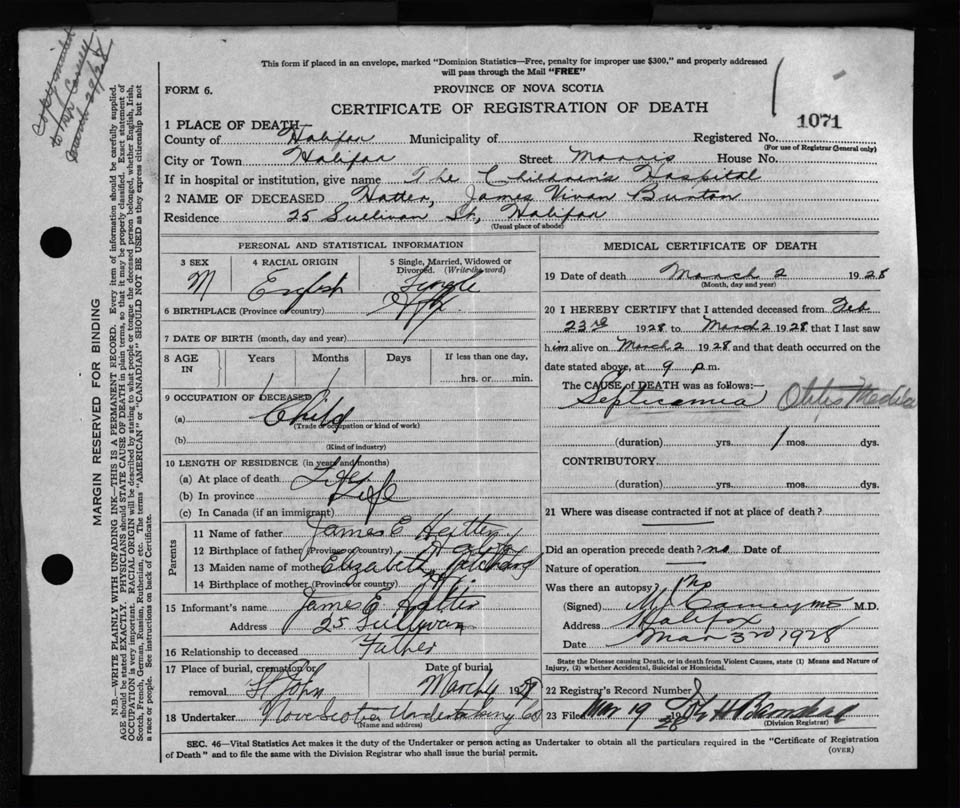 This form if placed in an envelope, marked "Dominion Statistics—Free, penalty for improper use $300," and properly addressed
will pass through the Mail "FREE"
FORM 6.
PROVINCE OF NOVA SCOTIA
CERTIFICATE OF REGISTRATION OF DEATH
1071
1 PLACE OF DEATH
County of Halifax Municipality of Registered No.
(For use of Registrar General only)
City or Town Halifax Street Morris House No.
If in hospital or institution, give name The Children's Hospital
2 NAME OF DECEASED James Burton
Residence 25 Sullivan St, Halifax
(Usual place of abode)
PERSONAL AND STATISTICAL INFORMATION
3 SEX
M
4 RACIAL ORIGIN
English
5 Single, Married, Widowed or
Divorced. (Write the word)
Single
6 BIRTHPLACE (Province or country) Hfx.
7 DATE OF BIRTH (month, day and year)
8 AGE
IN
Years
Months
Days
If less than one day,
hrs. or min.
1 1
9 OCCUPATION OF DECEASED
(a) Child
(Trade or occupation or kind of work)
(b)
(Kind of industry)
10 LENGTH OF RESIDENCE (in years and months)
(a) At place of death Life
(b) In province Life
(c) In Canada (if an immigrant)
Parents
11 Name of father James E
12 Birthplace of father (Province or country)
13 Maiden name of mother Elizabeth
14 Birthplace of mother (Province or country)
15 Informant's name James E
Address 25 Sullivan
16 Relationship to deceased Father
17 Place of burial, cremation or
removal St John
Date of burial
March 4 1928
18 Undertaker Nova Scotia Undertaking Co
(Name and address)
MEDICAL CERTIFICATE OF DEATH
19 Date of death March 2 1928
(Month, day and year)
20 I HEREBY CERTIFY that I attended deceased from Feb
23rd 1928 to March 2 1928 that I last saw
him alive on March 2 1928 and that death occurred on the
date stated above, at 9 p.m.
The CAUSE of DEATH was as follows:—
Septicamia Otitis Media
(duration) yrs. 1 mos. dys.
CONTRIBUTORY
(duration) yrs. mos. dys.
21 Where was disease contracted if not at place of death?
Did an operation precede death? no Date of
Nature of operation
Was there an autopsy? No
(Signed) M.D.
Address Halifax
Date Mar 3rd 1928
State the Disease causing Death, or in death from Violent Causes, state (1) Means and Nature of
Injury, (2) whether Accidental, Suicidal or Homicidal.
22 Registrar's Record Number
23 Filed Mar 19 28
(Division Registrar)
SEC. 46—Vital Statistics Act makes it the duty of the Undertaker or person acting as Undertaker to obtain all the particulars required in the "Certificate of Registration
of Death" and to file the same with the Division Registrar who shall issue the burial permit.
(OVER)
MARGIN RESERVED FOR BINDING
N.B.—WRITE PLAINLY WITH UNFADING INK—THIS IS A PERMANENT RECORD. Every item of information should be carefully supplied.
AGE should be stated EXACTLY. PHYSICIANS should STATE CAUSE OF DEATH in plain terms, so that it may be properly classified. Exact statement of
OCCUPATION is very important. RACIAL ORIGIN will be described by stating to what people or tongue the deceased person belonged, whether English, Irish,
Scotch, French, German, Russian, Ruthenian, etc. The terms "AMERICAN" or "CANADIAN" SHOULD NOT BE USED as they express citizenship but not
a race or people. See instructions on back of Certificate.